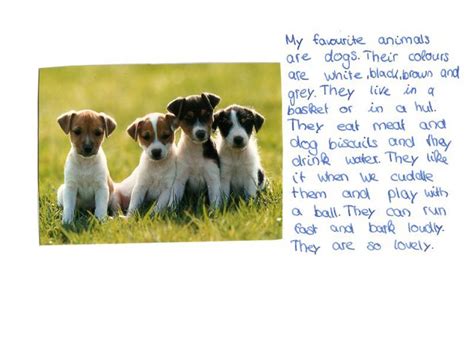 My favourite animals
are dogs. Their colours
are white, black, brown and
grey. They live in a
basket or in a hut.
They eat meat and
dog biscuits and they
drink water. They like
it when we cuddle
them and play with
a ball. They can run
fast and bark loudly.
They are so lovely.